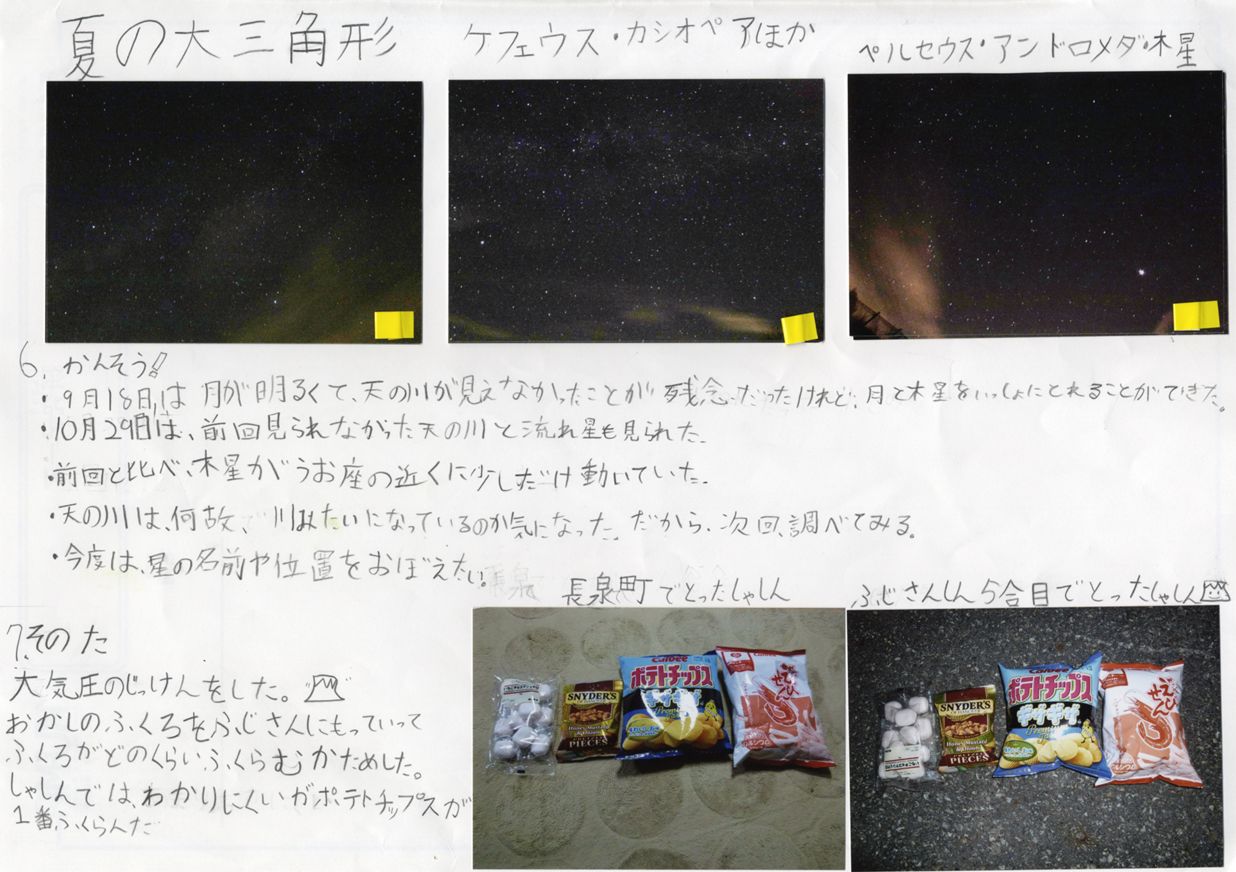 夏の大三角形
ケフェウス・カシオペアほか
ペルセウス・アンドロメダ・木星
6. かんそう!
・9月18日は月が明るくて、天の川が見えなかったことが残念だったけれど、月と木星をいっしょにとれることができた。
・10月29日は、前回見られなかった天の川と流れ星も見られた。
・前回と比べ、木星がうお座の近くに少しだけ動いていた。
・天の川は、何故、川みたいになっているのか気になった。だから、次回、調べてみる。
・今度は、星の名前や位置をおぼえたい。
長泉町でとったしゃしん
ふじさんしん5合目でとったしゃしん
7.そのた
大気圧のじっけんをした。
おかしのふくろをふじさんにもっていって
ふくろがどのくらいふくらむかためした。
しゃしんでは、わかりにくいがポテトチップスが
1番ふくらんだ
SNYDER'S
PIECES
Calbee
ポテトチップス
ギザギザ
えびせん
カルシウム
SNYDER'S
Honey Mustard
& Onion
PIECES
ポテトチップス
ギザギザ
えびせん